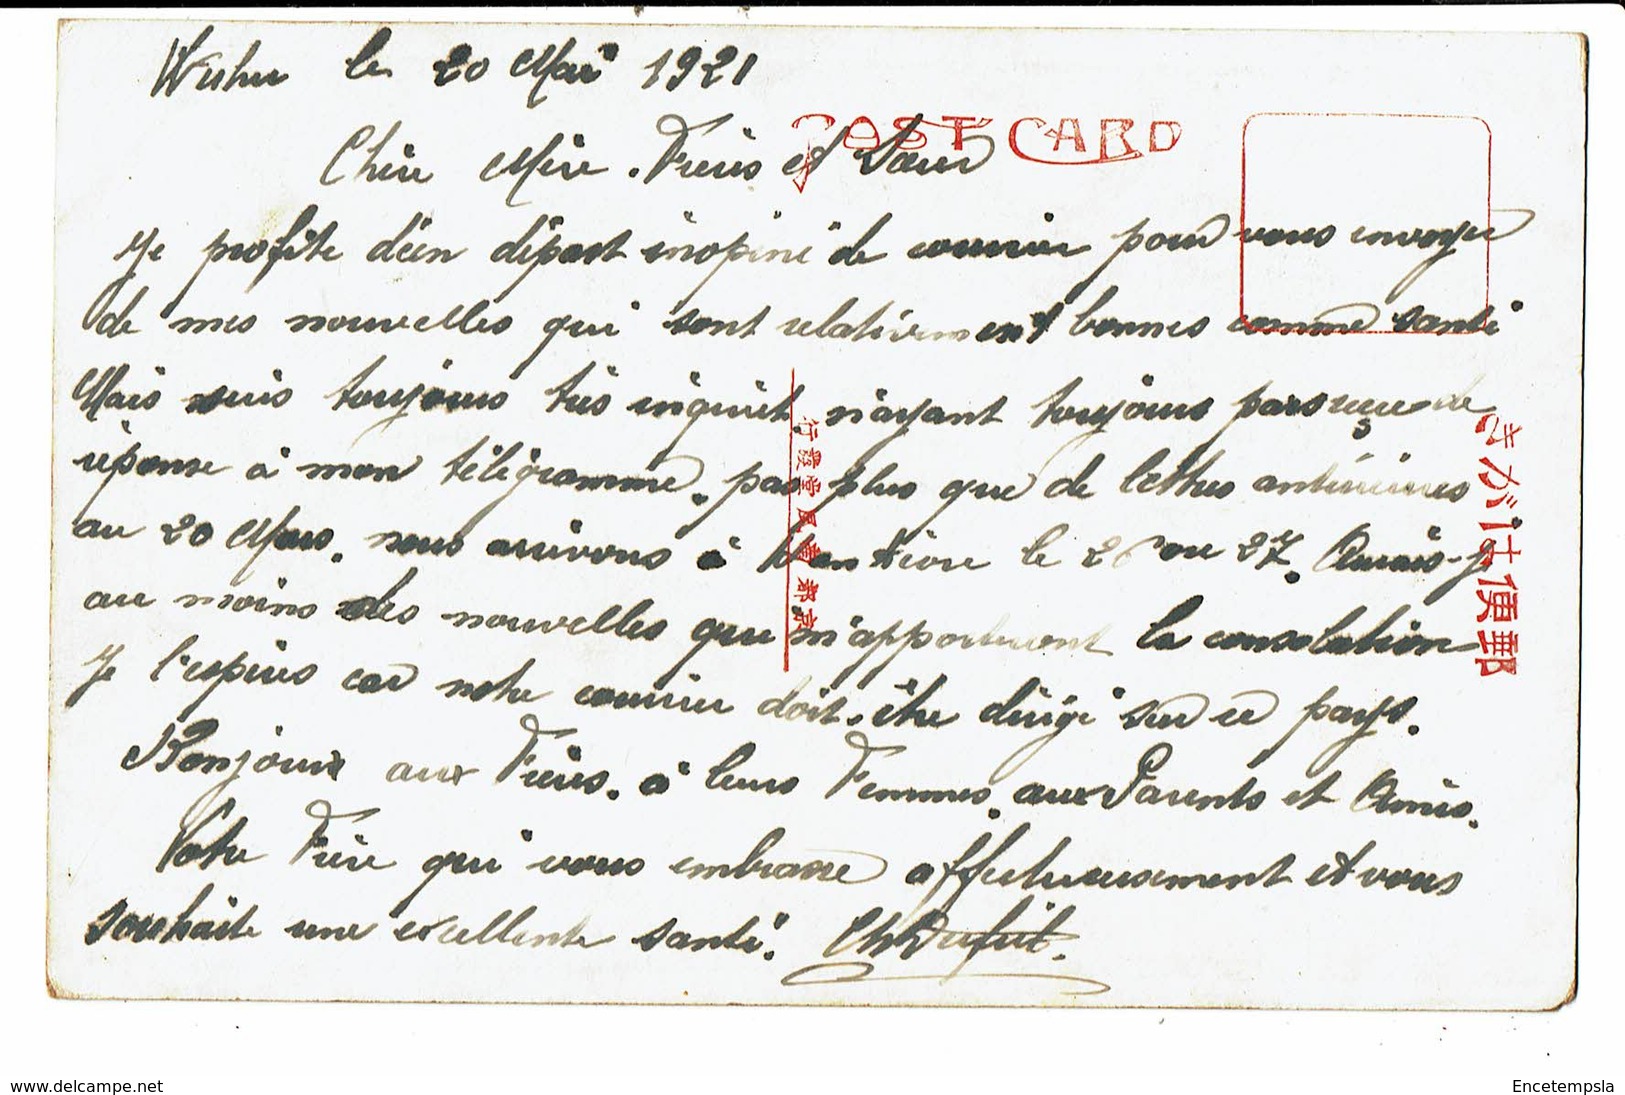 Wuhu le 20 Mai 1921
POST CARD
Chère Mère. Frères et Sœur
Je profite d'un départ inopiné de courrier pour vous envoyer
de mes nouvelles qui sont relativement bonnes comme santé
Mais suis toujours très inquiet, n'ayant toujours pas reçu de
réponse à mon télégramme, pas plus que de lettres antérieures
au 20 Mars. nous arrivons à le 26 ou 27. Aurais-je
au moins des nouvelles que m'apporteront la consolation
Je l'espère car notre courrier doit être dirigé sur ce pays.
Bonjour aux Frères. à leurs Femmes. aux Parents et Amis.
Votre Frère qui vous embrasse affectueusement et vous
souhaite une excellente santé. Ch Dufuit.
きがは便郵
行發堂風書都京
www.delcampe.net
Encetempsla